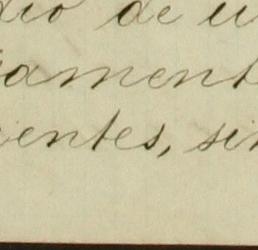 dio de u
tament
ientes, sin